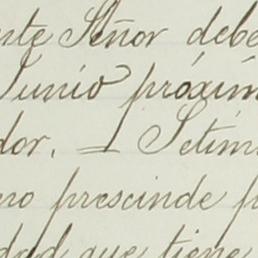 nte Señor debe
Junio próxim
dor. = Setim
ero prescinde p
dad que tiene